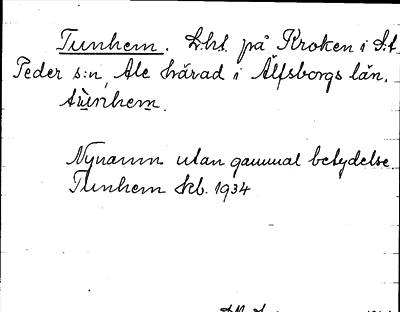 Tunhem. Lht. på Kroken i S:t
Peder s:n, Ale härad i Älfsborgs län.
tùnhem.
Nynamn utan gammal betydelse.
Tunhem Skb. 1934